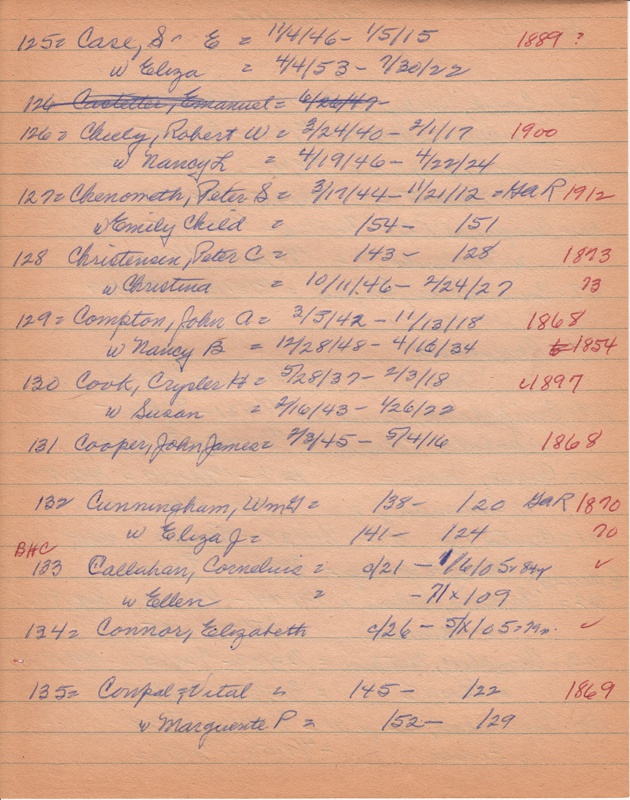 125= Case, S E = 11/4/46 - 1/5/15 1889 ?
w Eliza = 4/4/53 - 7/30/22
126 Castetter, Emanuel = 6/26/47-
126= Chuby, Robert W = 3/24/40 - 2/1/17 1900
w Nancy L = 4/19/46 - 4/22/24
127= Chenoweth, Peter S = 3/17/44 - 11/21/12 = GaR 1912
w Emily Child = /54 - /51
128 Christensen, Peter C = /43 - /28 1873
w Christina = 10/11/46 - 2/24/27 73
129= Compton, John A = 3/5/42 - 11/13/18 1868
w Nancy B = 12/28/48 - 4/16/34 1854
130 Cook, H = 5/28/37 - 2/3/18 ✓1897
w Susan = 2/16/43 - 1/26/22
131 Cooper, John James = 2/3/45 - 5/4/16 1868
132 Cunningham, Wm H = /38 - /20 GaR 1870
w Eliza J = /41 - /24 70
BHC
133 Callahan, Cornelius = c/21 - 1/6/05 ✓
w Ellen = - 71 x 109
134= Connor, Elizabeth c/26 - 5/X/05 ✓
135= Vital = /45 - /22 1869
w Marguente P = /52 - /29